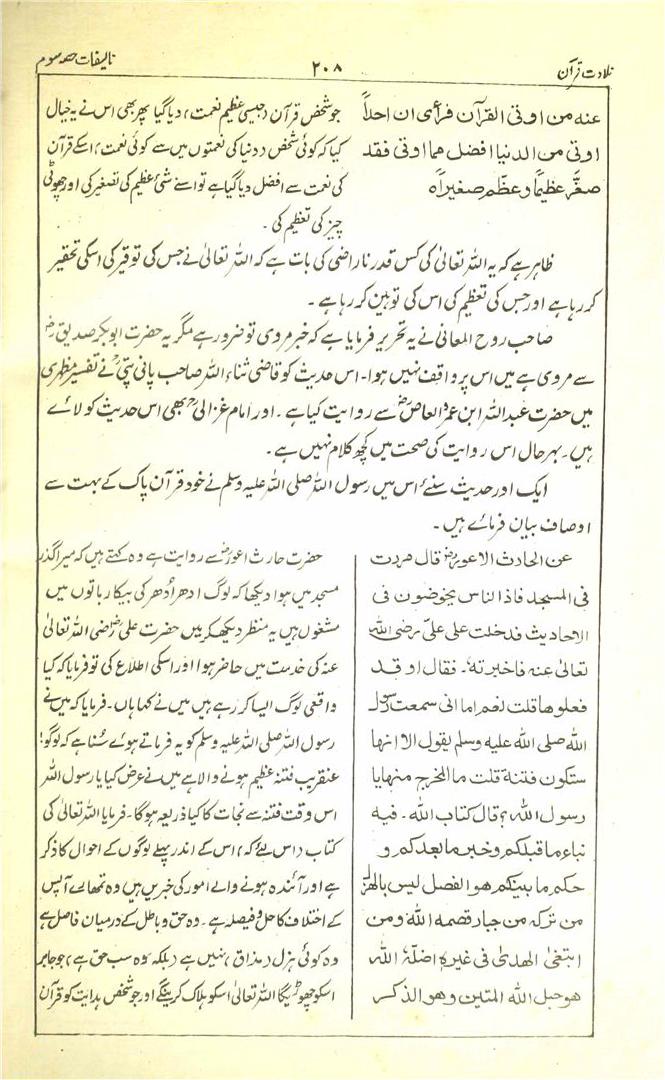 تلاوت قرآن
۲۰۸
تالیفات حصہ سوم
عنه من اوتی القرآن فرأی ان احداً
اوتی من الدنیا افضل مما اوتی فقد
صغّر عظیماً وعظّم صغیراً۔
جو شخص قرآن (جیسی عظیم نعمت) دیا گیا پھر بھی اس نے یہ خیال
کیا کہ کوئی شخص (دنیا کی نعمتوں میں سے کوئی نعمت) اسکے قرآن
کی نعمت سے افضل دیا گیا ہے تو اسنے شئ عظیم کی تصغیر کی اور چھوٹی
چیز کی تعظیم کی۔
ظاہر ہے کہ یہ اللہ تعالیٰ کی کس قدر ناراضی کی بات ہے کہ اللہ تعالیٰ نے جس کی توقیر کی اسکی تحقیر
کر رہا ہے اور جس کی تعظیم کی اس کی توہین کر رہا ہے۔
صاحب روح المعانی نے یہ تحریر فرمایا ہے کہ خبر مروی تو ضرور ہے مگر یہ حضرت ابوبکر صدیق رضؓ
سے مروی ہے میں اس پر واقف نہیں ہوا۔ اس حدیث کو قاضی ثناء اللہ صاحب پانی پتیؒ نے تفسیر مظہری
میں حضرت عبداللہ ابن عمرو العاصؓ سے روایت کیا ہے۔ اور امام غزالیؒ بھی اس حدیث کو لائے
ہیں۔ بہرحال اس روایت کی صحت میں کچھ کلام نہیں ہے۔
ایک اور حدیث سنئے اس میں رسول اللہ صلی اللہ علیہ وسلم نے خود قرآن پاک کے بہت سے
اوصاف بیان فرمائے ہیں۔
عن الحادث الاعورؓ قال مررت
فی المسجد فاذا الناس یخوضون فی
الاحادیث فدخلت علی علیّ رضی اللہ
تعالیٰ عنه فاخبرته۔ فقال او قد
فعلوها قلت نعم اما انی سمعت رسول
اللہ صلی اللہ علیه وسلم یقول الا انها
ستکون فتنة قلت ما المخرج منها یا
رسول اللہ؟ قال کتاب اللہ۔ فیه
نباء ما قبلکم وخبر ما بعدکم و
حکم ما بینکم هو الفصل لیس بالهزل
من ترکه من جبار قصمه اللہ ومن
ابتغیٰ الهدیٰ فی غیره اضلّه اللہ
هو حبل اللہ المتین وهو الذکر
حضرت حارث اعورؓ سے روایت ہے وہ کہتے ہیں کہ میرا گذر
مسجد میں ہوا دیکھا کہ لوگ ادھر اُدھر کی بیکار باتوں میں
مشغول ہیں یہ منظر دیکھ کر میں حضرت علی رضی اللہ تعالیٰ
عنہ کی خدمت میں حاضر ہوا اور اسکی اطلاع کی تو فرمایا کہ کیا
واقعی لوگ ایسا کر رہے ہیں میں نے کہا ہاں۔ فرمایا کہ میں نے
رسول اللہ صلی اللہ علیہ وسلم کو یہ فرماتے ہوئے سُنا ہے کہ لوگو!
عنقریب فتنہ عظیم ہونے والا ہے میں نے عرض کیا یا رسول اللہ
اس وقت فتنہ سے نجات کا کیا ذریعہ ہوگا۔ فرمایا اللہ تعالیٰ کی
کتاب (اس لئے کہ) اس کے اندر پہلے لوگوں کے احوال کا ذکر
ہے اور آئندہ ہونے والے امور کی خبریں ہیں وہ تمہارے آپس
کے اختلاف کا حل و فیصلہ ہے۔ وہ حق و باطل کے درمیان فاصل ہے
وہ کوئی ہزل (مذاق) نہیں ہے (بلکہ وہ سب حق ہے) جو جابر
اسکو چھوڑیگا اللہ تعالیٰ اسکو ہلاک کرینگے اور جو شخص ہدایت کو قرآن